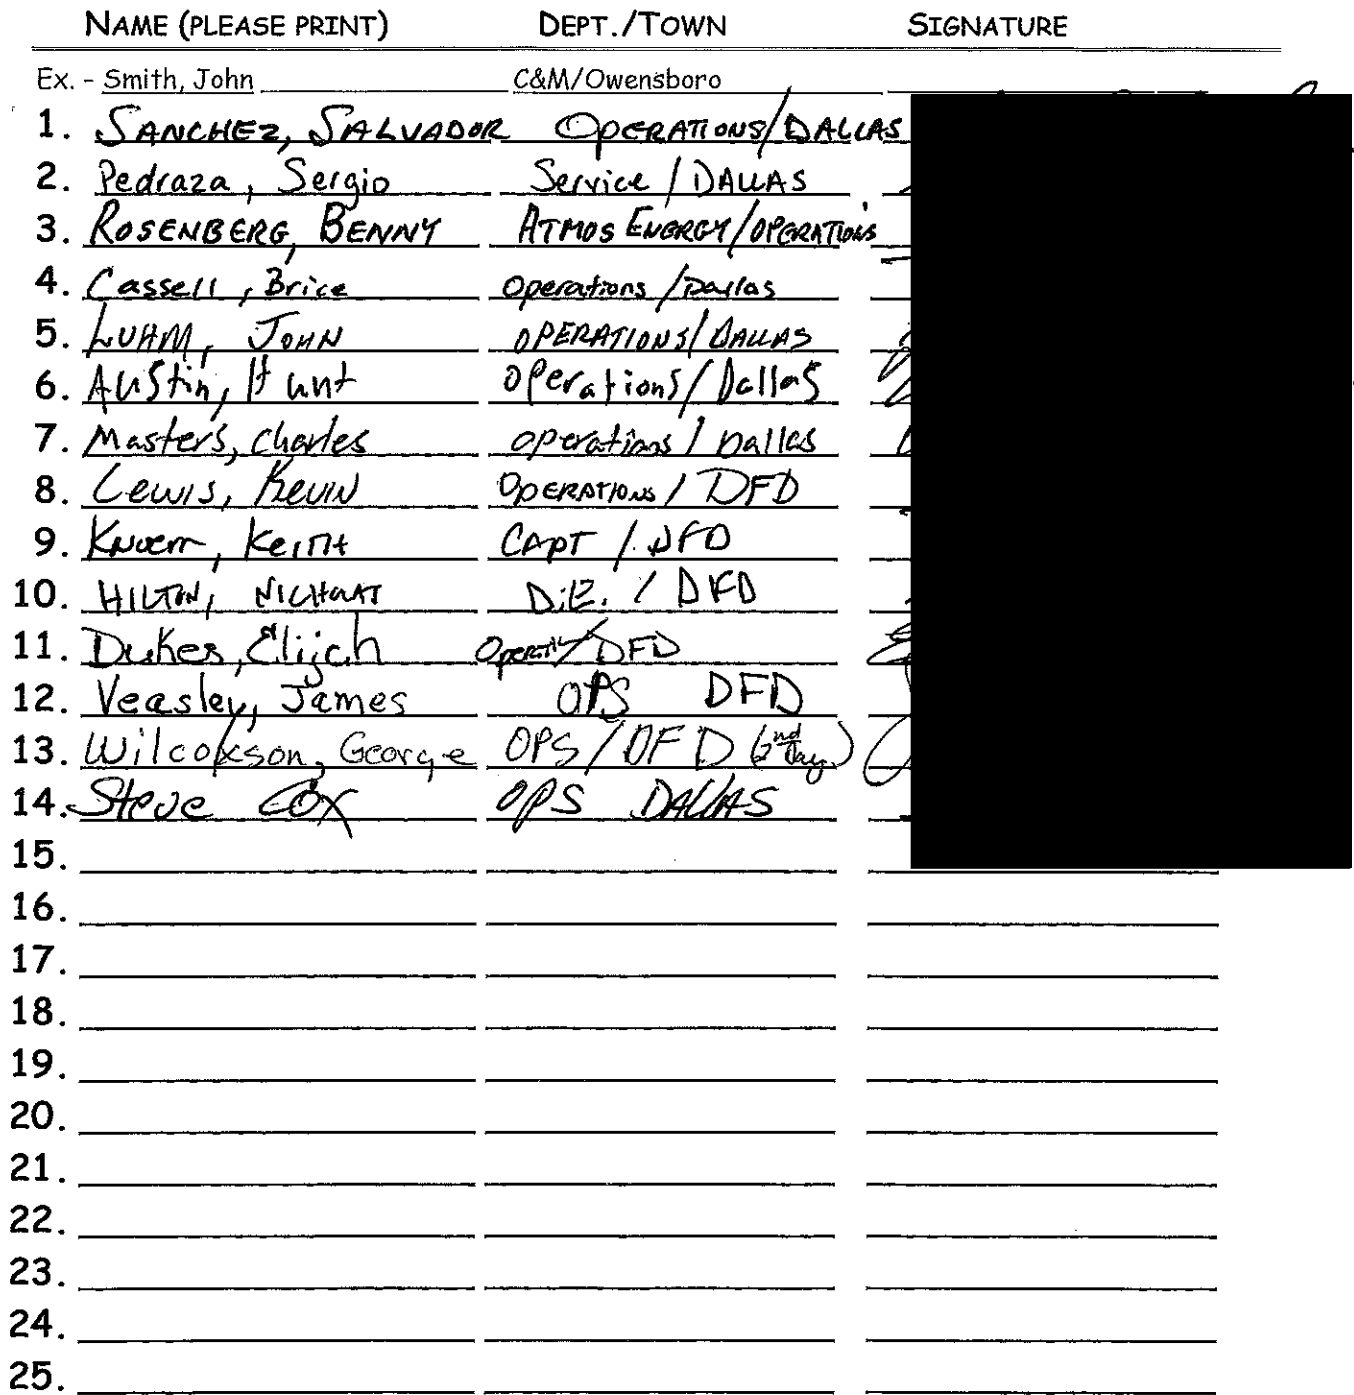 NAME (PLEASE PRINT) DEPT./TOWN SIGNATURE
Ex. - Smith, John C&M/Owensboro
1. SANCHEZ, SALVADOR OPERATIONS/DALLAS
2. Pedraza, Sergio Service / DALLAS
3. ROSENBERG, BENNY ATMOS ENERGY/OPERATIONS
4. Cassell, Brice Operations/Dallas
5. LUHM, JOHN OPERATIONS/DALLAS
6. Austin, Hunt Operations/Dallas
7. Masters, Charles operations / Dallas
8. Lewis, Kevin OPERATIONS / DFD
9. Keith CAPT / DFD
10. HILTON, / DFD
11. Dukes, Elijah / DFD
12. Veasley, James OPS DFD
13. Wilcoxson, George OPS/DFD (2nd Day)
14. Steve Cox OPS DALLAS
15.
16.
17.
18.
19.
20.
21.
22.
23.
24.
25.